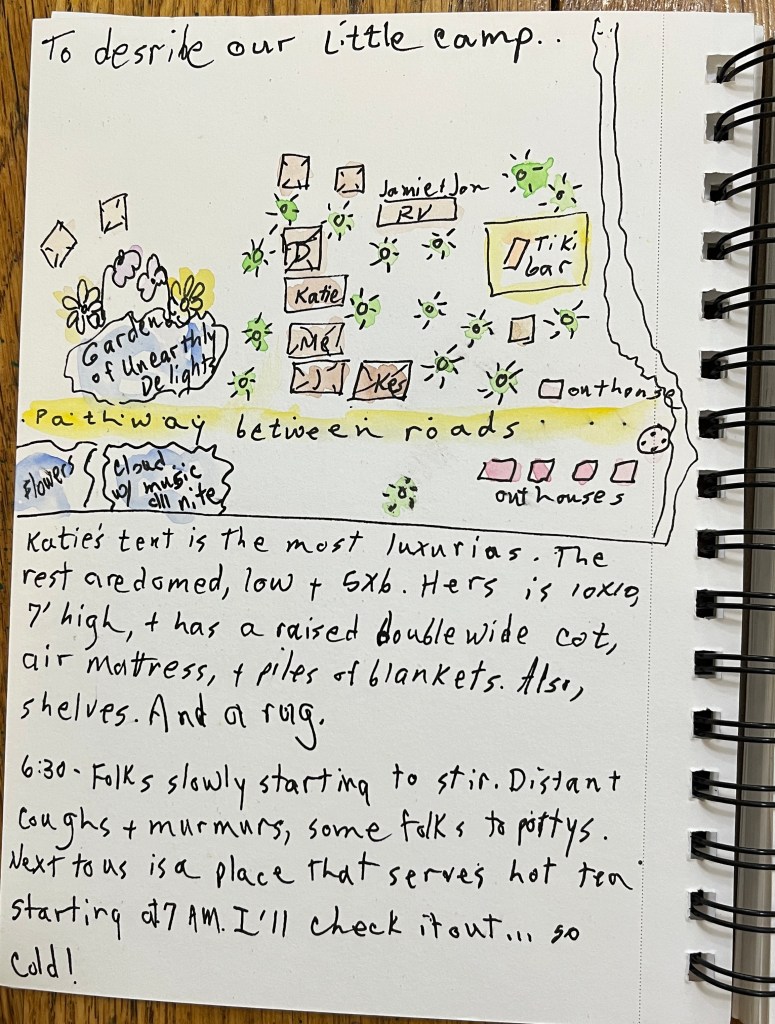 To desribe our Little camp..
Jamie + Jon
RV
D
Tiki
bar
Katie
Me
J
Kes
Garden
of Unearthly
Delights
outhouse
Pathway between roads
Flowers
Cloud
w/ music
all nite
outhouses
Katie's tent is the most luxurias. The
rest are domed, low + 5x6. Hers is 10x10,
7' high, + has a raised double wide cot,
air mattress, + piles of blankets. Also,
shelves. And a rug.
6:30 - Folks slowly starting to stir. Distant
coughs + murmurs, some folks to pottys.
Next to us is a place that serves hot tea
starting at 7 AM. I'll check it out... so
cold!